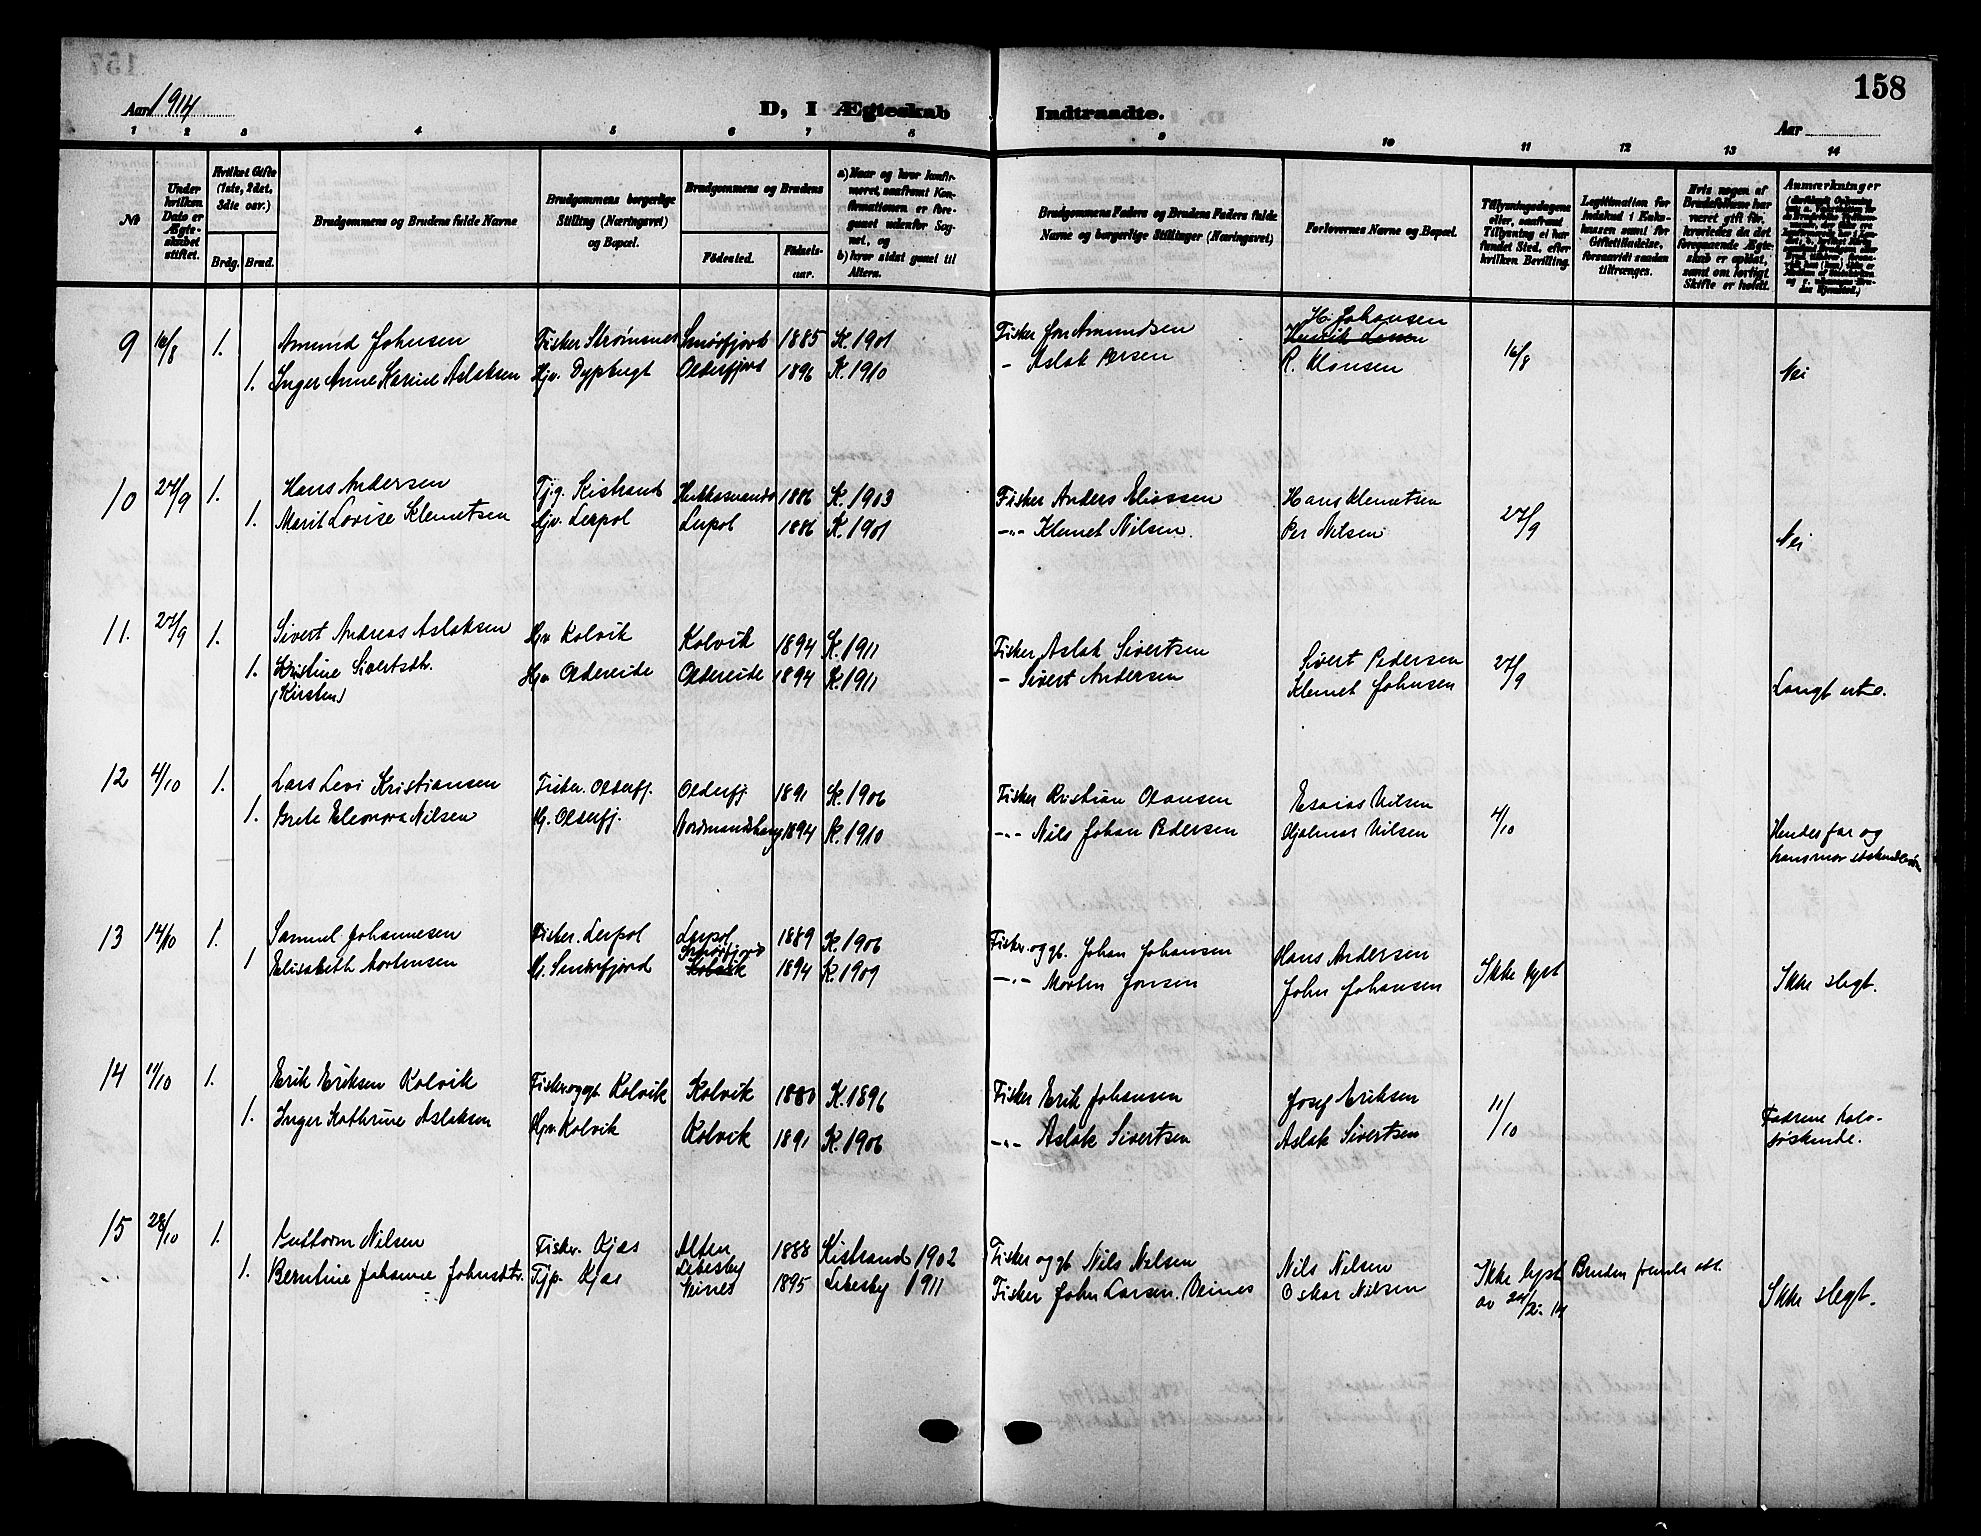 158
Aar 1914
D, I Ægteskab Indtraadte.
Aar
1 2 3 4 5 6 7 8 9 10 11 12 13 14
№
Under hvilken Dato er Ægteskabet stiftet.
Hvilket Gifte (1ste, 2det, 3die osv.)
Brdg. Brud.
Brudgommens og Brudens fulde Navne
Brudgommens borgerlige Stilling (Næringsvei) og Bopæl.
Brudgommens og Brudens
Fødested. Fødselsaar.
a) Naar og hvor konfirmeret, saafremt Konfirmationen er foregaaet udenfor Sognet, og
b) hvor sidst gaaet til Alters.
Brudgommens Faders og Brudens Faders fulde Navne og borgerlige Stillinger (Næringsvei)
Forlovernes Navne og Bopæl.
Tillysningsdagene eller, saafremt Tillysning ei har fundet Sted, efter hvilken Bevilling.
Legitimation for Indskud i Enkekassen samt for Giftetilladelse, forsaavidt saadan tiltrænges.
Hvis nogen af Brudefolkene har været gift før, hvorledes da det foregaaende Ægteskab er opløst, samt om lovligt Skifte er holdt.
Anmærkninger
9 16/8 1. Amund Johnsen Fisker Strømsnes Smørfjord 1885 K. 1901 Fisker Jon Amundsen H. Johansen 16/8
1. Inger Anne Karine Aslaksen Hjv. Dypbugt Olderfjord 1896 K. 1910 - Aslak Persen R. Klausen Nei
10 27/9 1. Hans Andersen Tj.g. Kistrand 1886 K. 1903 Fisker Anders Eliassen Hans Klemetsen 27/9
1. Marit Lovise Klemetsen Hjv. Lerpol Lerpol 1886 K. 1901 -"- Klemet Nilsen. Per Nilsen Nei
11. 27/9 1. Sivert Andreas Aslaksen Hjv Kolvik Kolvik 1894 K. 1911 Fisker Aslak Sivertsen Sivert Pedersen 27/9
1. Kristine Sivertsdtr. Hjv Oldereide Oldereide 1894 K. 1911 - Sivert Andersen Klemet Johnsen Langt ute.
(Kirsten)
12 4/10 1. Lars Levi Kristiansen Fisker. Olderfj. Olderfj. 1891 K. 1906 Fisker Kristian Olausen Esaias Nilsen 4/10
1. Grete Eleonora Nilsen Hj. Olderfj. Nordmandshavn 1894 K. 1910 -"- Nils Johan Pedersen Hjalmar Nilsen Hendes far og
hans mor
13 14/10 1. Samuel Johannesen Fisker. Lerpol Lerpol 1889 K. 1906 Fisker og gb. Johan Johansen Hans Andersen Ikke lyst
1 Elisabeth Mortensen Hj. Smørfjord Smørfjord Kolvik 1894 K. 1909 -"- Morten Jonsen John Johansen Ikke slegt.
14 11/10 1. Erik Eriksen Kolvik Fisker og gb. Kolvik Kolvik 1880 K. 1896 Fisker Erik Johansen Josef Eriksen 11/10
1. Inger Kathrine Aslaksen Hjv. Kolvik Kolvik 1891 K. 1906 -"- Aslak Sivertsen Aslak Sivertsen Fædrene halvsøskende.
15 28/10 1. Guttorm Nilsen Fisker. Kjæs Alten 1888 Kistrand 1902 Fisker og gb. Nils Nilsen Nils Nilsen Ikke lyst
1. Berntine Johanne Johnsdtr. Tjp. Kjæs Lebesby Veines 1895 Lebesby 1911 Fisker John Larsen, Veines Oskar Nilsen Bruden att. Ikke slegt.